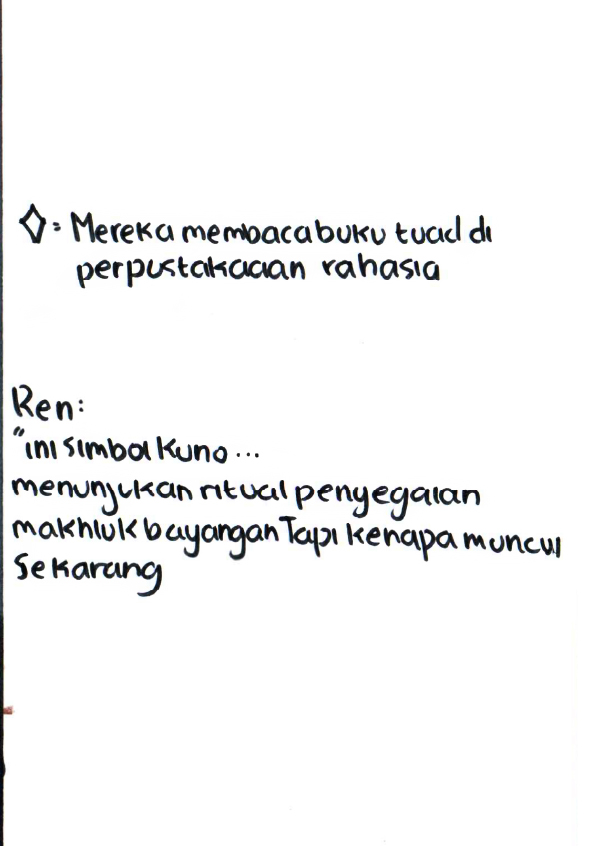 ◇: Mereka membaca buku tuad di
perpustakaaan rahasia
Ren:
"ini simbol Kuno ...
menunjukan ritual penyegaian
makhluk bayangan Tapi kenapa muncul
Sekarang